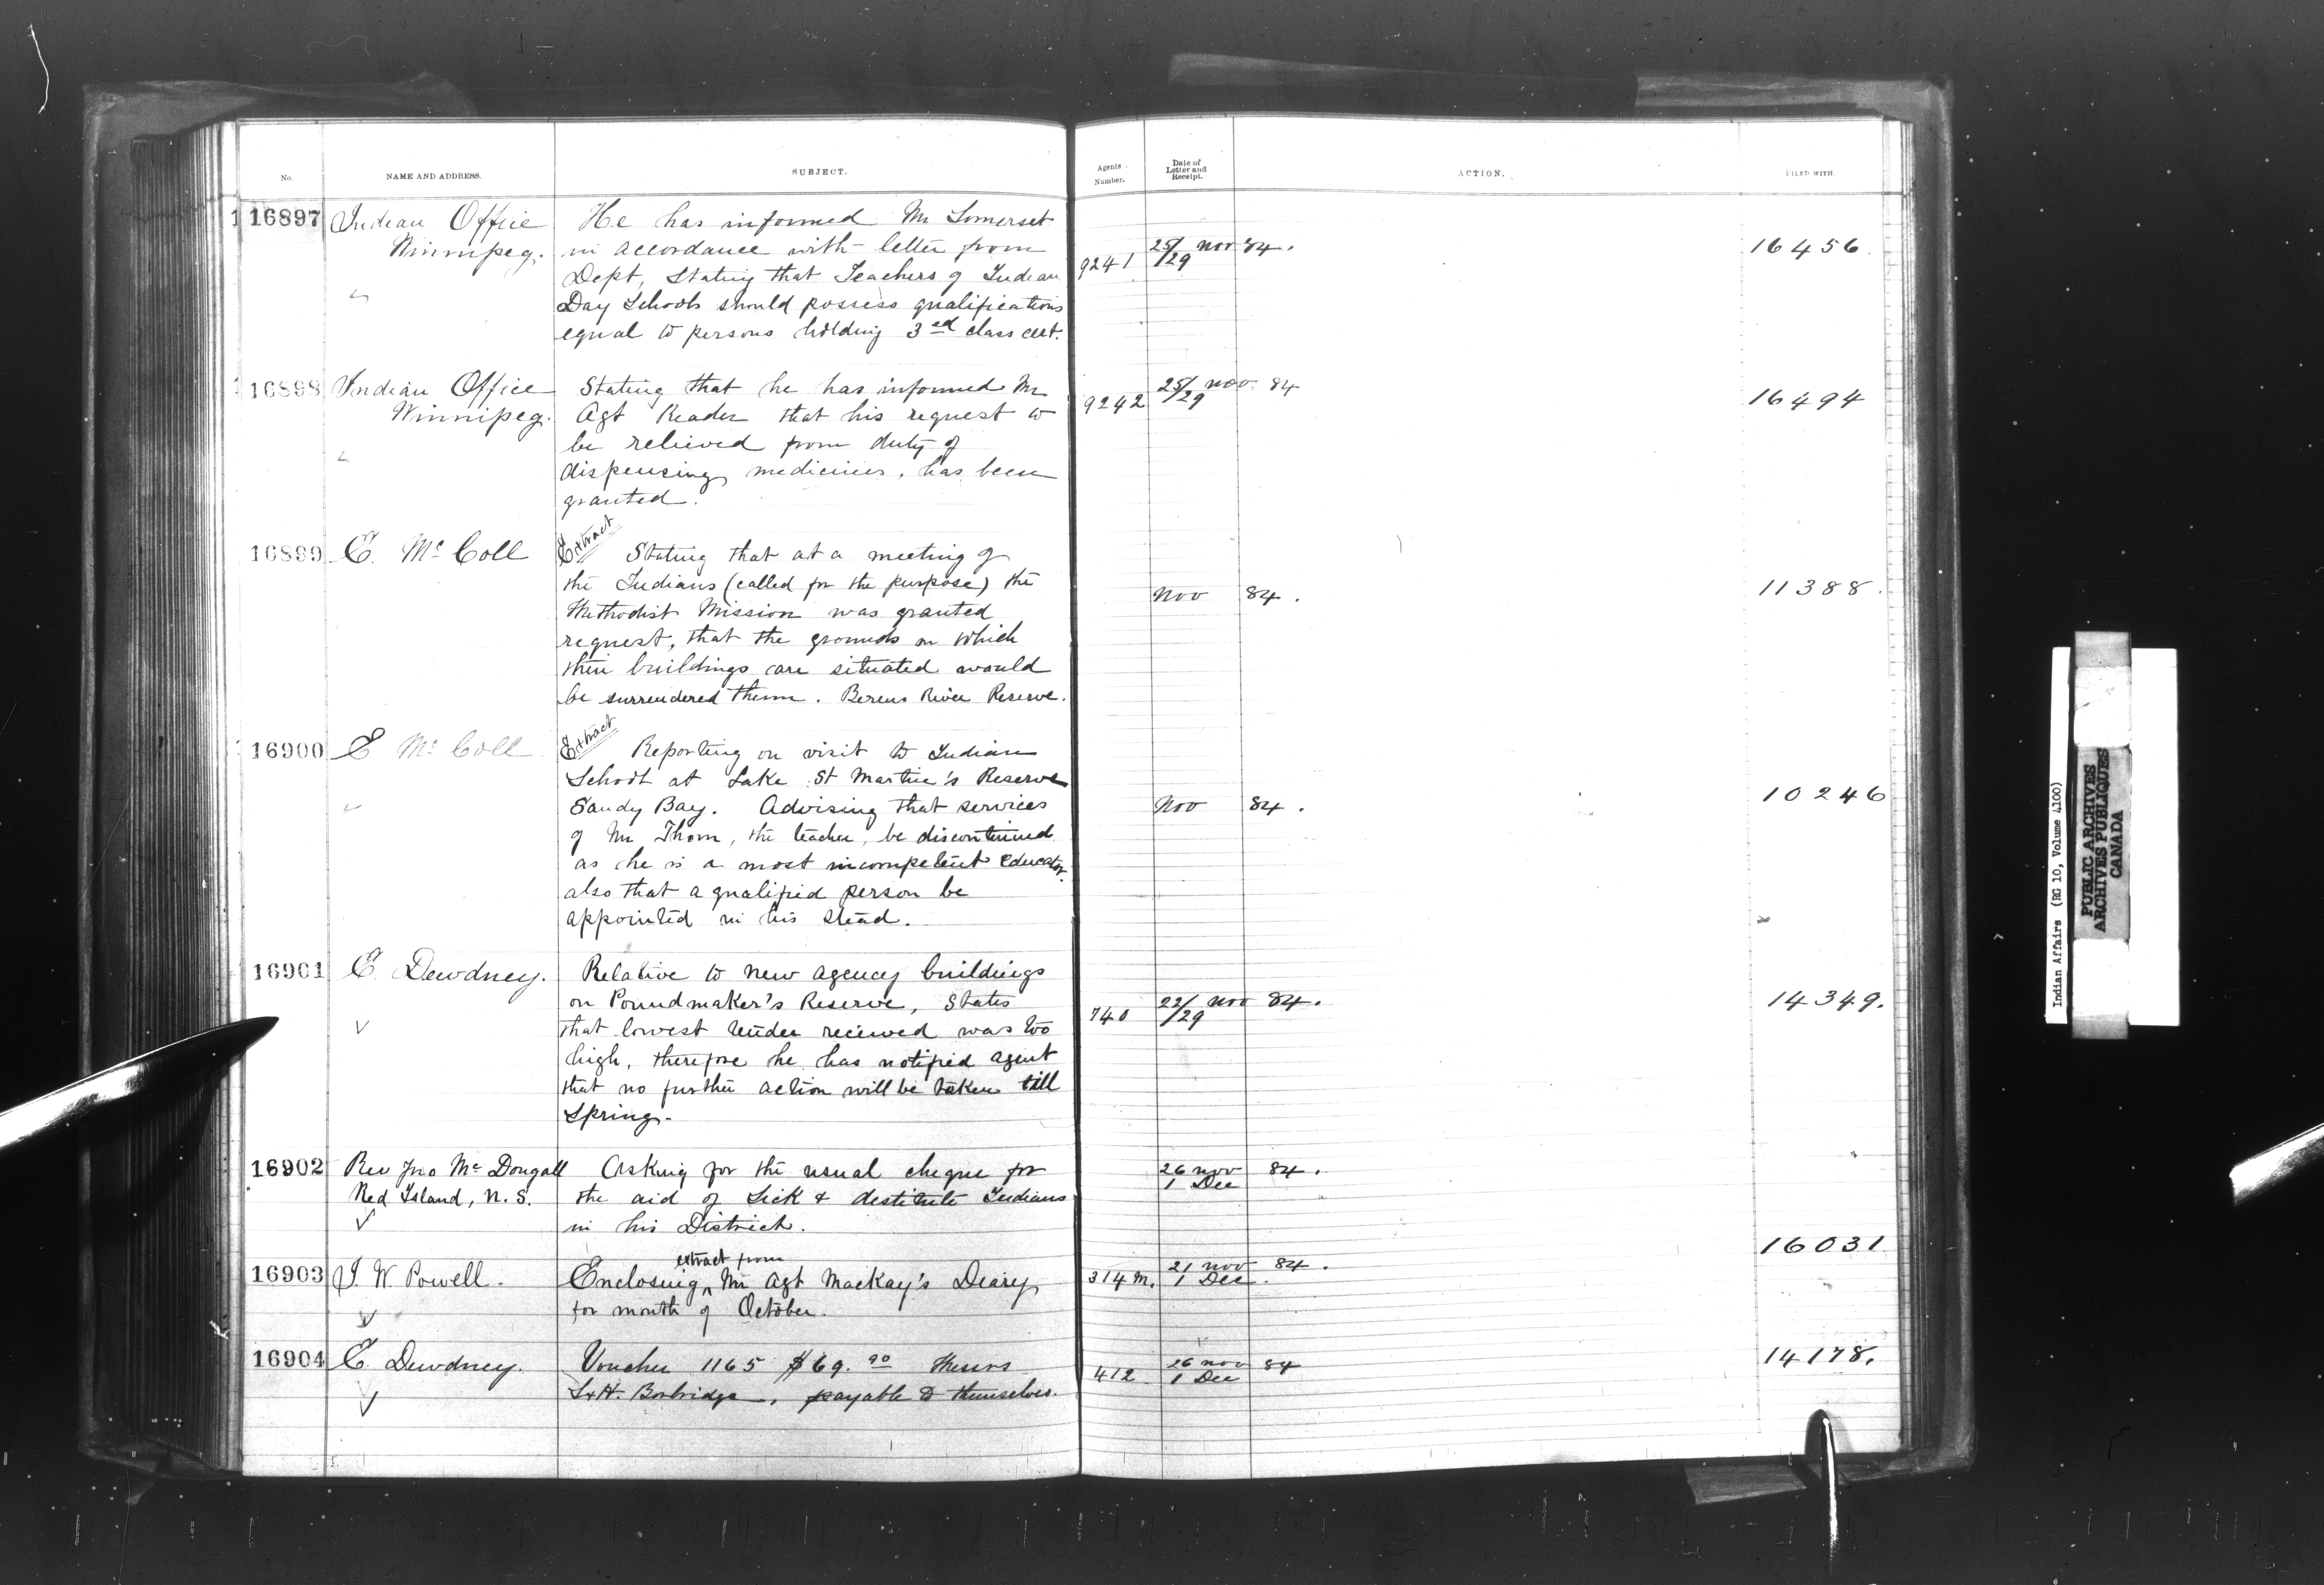 No.
NAME AND ADDRESS.
SUBJECT.
Agents Number.
Date of Letter and Receipt.
ACTION.
FILED WITH.
16897
Indian Office
Winnipeg.
He has informed Mr Somerset
in accordance with letter from
Dept, Stating that Teachers of Indian
Day Schools should possess qualifications
equal to persons holding 3rd class cert.
9241
25/ Nov 84.
/29
16456
16898
Indian Office
Winnipeg.
Stating that he has informed Mr
Agt Reader that his request to
be relieved from duty of
dispensing medicines, has been
granted.
9242
25/ Nov. 84
/29
16494
16899
E. McColl
Extract
Stating that at a meeting of
the Indians (called for the purpose) the
Methodist Mission was granted
request, that the grounds on which
their buildings are situated would
be surrendered them. Berens River Reserve.
Nov 84.
11388.
16900
E McColl
Extract
Reporting on visit to Indian
School at Lake St Martin's Reserve
Sandy Bay. Advising that services
of Mr Thom, the teacher, be discontinued
as he is a most incompetent educator.
also that a qualified person be
appointed in his stead.
Nov 84.
10246
16901
E. Dewdney.
Relative to new agency buildings
on Poundmaker's Reserve, States
that lowest tender received was too
high, therefore he has notified agent
that no further action will be taken till
Spring.
740
22/ Nov 84.
/29
14349.
16902
Rev Jno McDougall
Red Island, N.S.
Asking for the usual cheque for
the aid of Sick & destitute Indians
in his District.
26 Nov 84.
1 Dec
16903
I. W. Powell.
extract from
Enclosing ^ Mr Agt Mackay's Diary
for month of October.
314 M.
21 Nov 84.
1 Dec.
16031
16904
E. Dewdney.
Voucher 1165 $69.90 Messrs
S&H. Borbridge, payable to themselves.
412
26 Nov 84
1 Dec
14178.
Indian Affairs (RG 10, Volume 4100)
PUBLIC ARCHIVES
ARCHIVES PUBLIQUES
CANADA